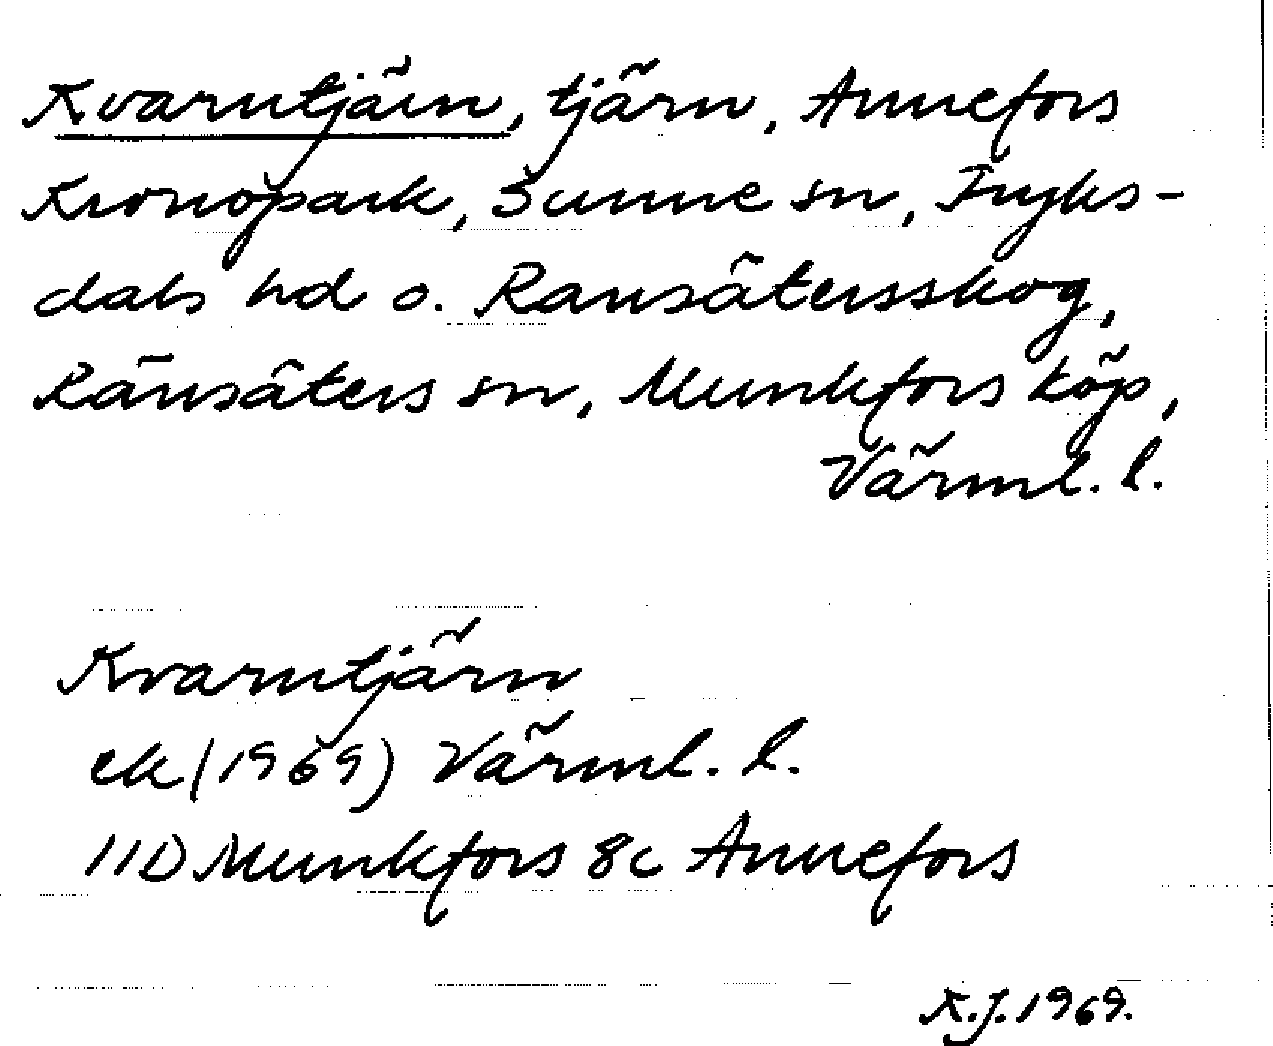 Kvarntjärn, tjärn, Annefors
Kronopark, Sunne sn, Fryks-
dals hd o. Ransätersskog,
Ransäters sn, Munkfors köp,
Värml. l.
Kvarntjärn
ek (1969) Värml. l.
11D Munkfors 8c Annefors
K.J. 1969.